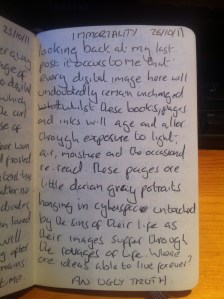 IMMORTALITY 25/10/11
looking back at my last
post it occurs to me that
every digital image here will
undoubtedly remain unchanged
whilst these books, pages
and inks will age and alter
through exposure to light,
air, moisture and the occasional
re-read. These pages are
little dorian gray portraits
hanging in cyberspace untouched
by the sins of their life as
their images suffer through
the ravages of life. Where
are ideas able to live forever?
AN UGLY TRUTH